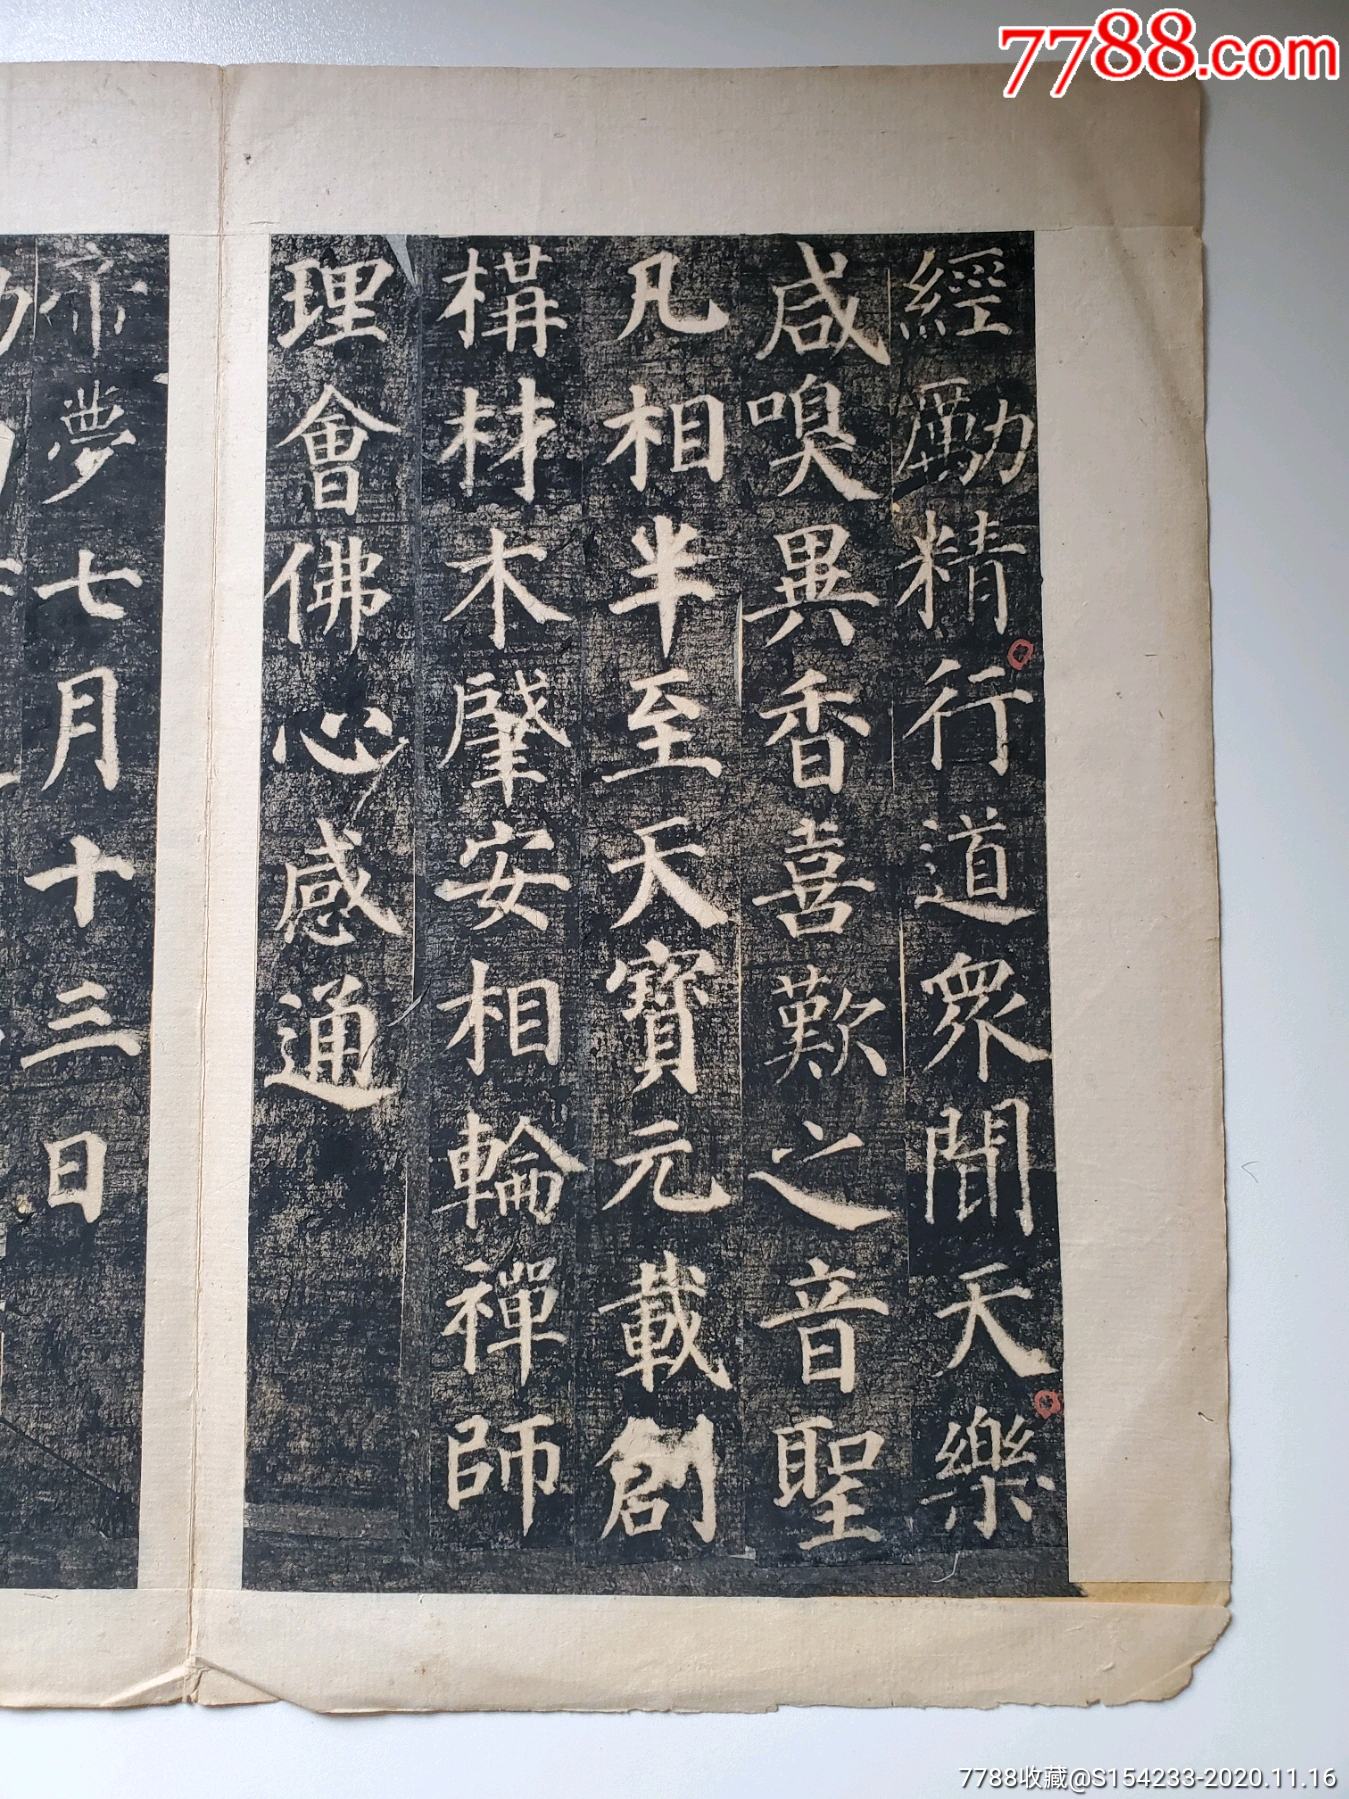 7788.com
經勵精行道眾聞天樂
咸嗅異香喜歎之音聖
凡相半至天寶元載創
構材木肇安相輪禪師
理會佛心感通
帝夢七月十三日
7788收藏@S154233-2020.11.16